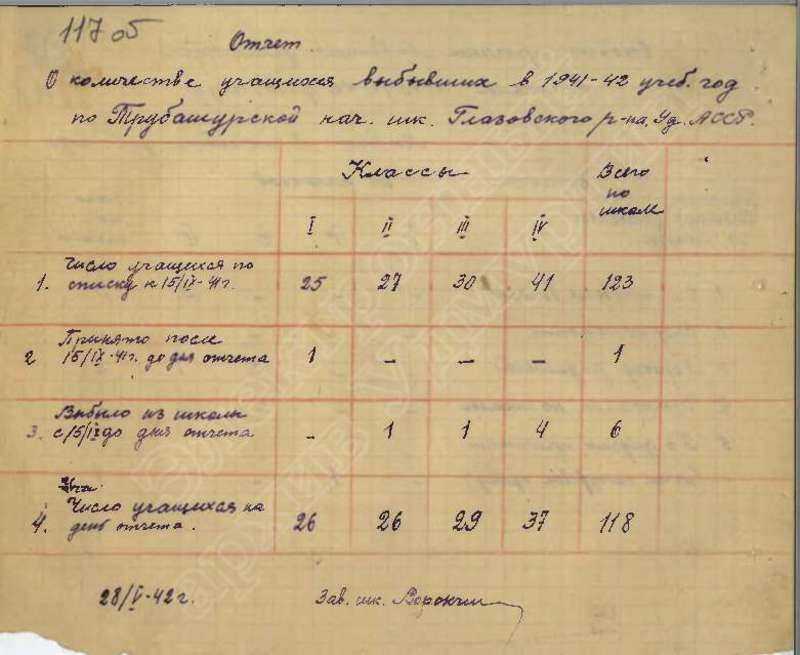 117 об
Отчет
О количестве учащихся выбывших в 1941-42 учеб. год
по Трубашурской нач. шк. Глазовского р-на, Уд. АССР.
Классы Всего по школе
I II III IV
1. Число учащихся по
списку к 15/IX-41 г. 25 27 30 41 123
2 Принято после
15/IX-41 г. до дня отчета 1 – – – 1
3. Выбыло из школы
с 15/IX до дня отчета – 1 1 4 6
4. Число учащихся на
день отчета. 26 26 29 37 118
28/V-42 г. Зав. шк.